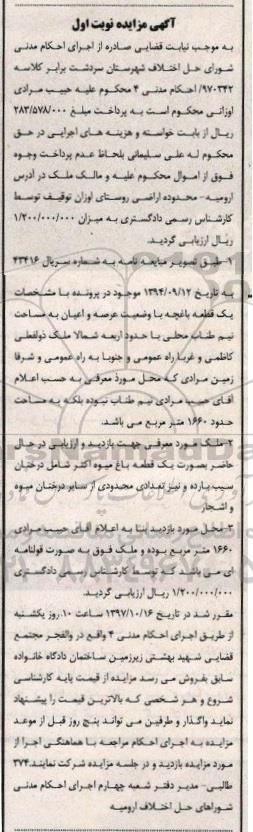 آگهی مزایده نوبت اول
به موجب نیابت قضایی صادره از اجرای احکام مدنی
شورای حل اختلاف شهرستان سردشت برابر کلاسه
۹۷۰۳۴۲/ احکام مدنی ۴ محکوم علیه حبیب مرادی
اوزانی محکوم است به پرداخت مبلغ ۲۸۳/۵۷۸/۰۰۰
ریال از بابت خواسته و هزینه های اجرایی در حق
محکوم له علی سلیمانی بلحاظ عدم پرداخت وجوه
فوق از اموال محکوم علیه و مالک ملک در آدرس
ارومیه- محدوده اراضی روستای اوزان توقیف توسط
کارشناس رسمی دادگستری به میزان ۱/۲۰۰/۰۰۰/۰۰۰
ریال ارزیابی گردید.
۱- طبق تصویر مبایعه نامه به شماره سریال ۴۳۴۱۶
به تاریخ ۱۳۹۴/۰۹/۱۲ موجود در پرونده با مشخصات
یک قطعه باغچه با وضعیت عرصه و اعیان به مساحت
نیم طناب محلی با حدود اربعه شمالا ملک ذولفعلی
کاظمی و غربا راه عمومی و جنوبا به راه عمومی و شرقا
زمین مرادی که محل مورد معرفی به حسب اعلام
آقای حبیب مرادی نیم طناب نبوده بلکه به مساحت
حدود ۱۶۶۰ متر مربع می باشد.
۲- ملک مورد معرفی جهت بازدید و ارزیابی در حال
حاضر بصورت یک قطعه باغ میوه اکثر شامل درختان
سیب بارده و نیز تعدادی محدودی از سایر درختان میوه
و اشجار
۳- محل مورد بازدید بنا به اعلام آقای حبیب مرادی
۱۶۶۰ متر مربع بوده و ملک فوق به صورت قولنامه
ای می باشد که توسط کارشناس رسمی دادگستری
۱/۲۰۰/۰۰۰/۰۰۰ ریال ارزیابی گردید.
مقرر شد در تاریخ ۱۳۹۷/۱۰/۱۶ ساعت ۱۰ روز یکشنبه
از طریق اجرای احکام مدنی ۴ واقع در والفجر مجتمع
قضایی شهید بهشتی زیرزمین ساختمان دادگاه خانواده
سابق بفروش می رسد مزایده از قیمت پایه کارشناسی
شروع و هر شخصی که بالاترین قیمت را پیشنهاد
نماید واگذار و طرفین می تواند پنج روز قبل از موعد
مزایده به اجرای احکام مراجعه با هماهنگی اجرا از
مورد مزایده بازدید و در جلسه مزایده شرکت نمایند.۳۷۴
طالبی- مدیر دفتر شعبه چهارم اجرای احکام مدنی
شوراهای حل اختلاف ارومیه